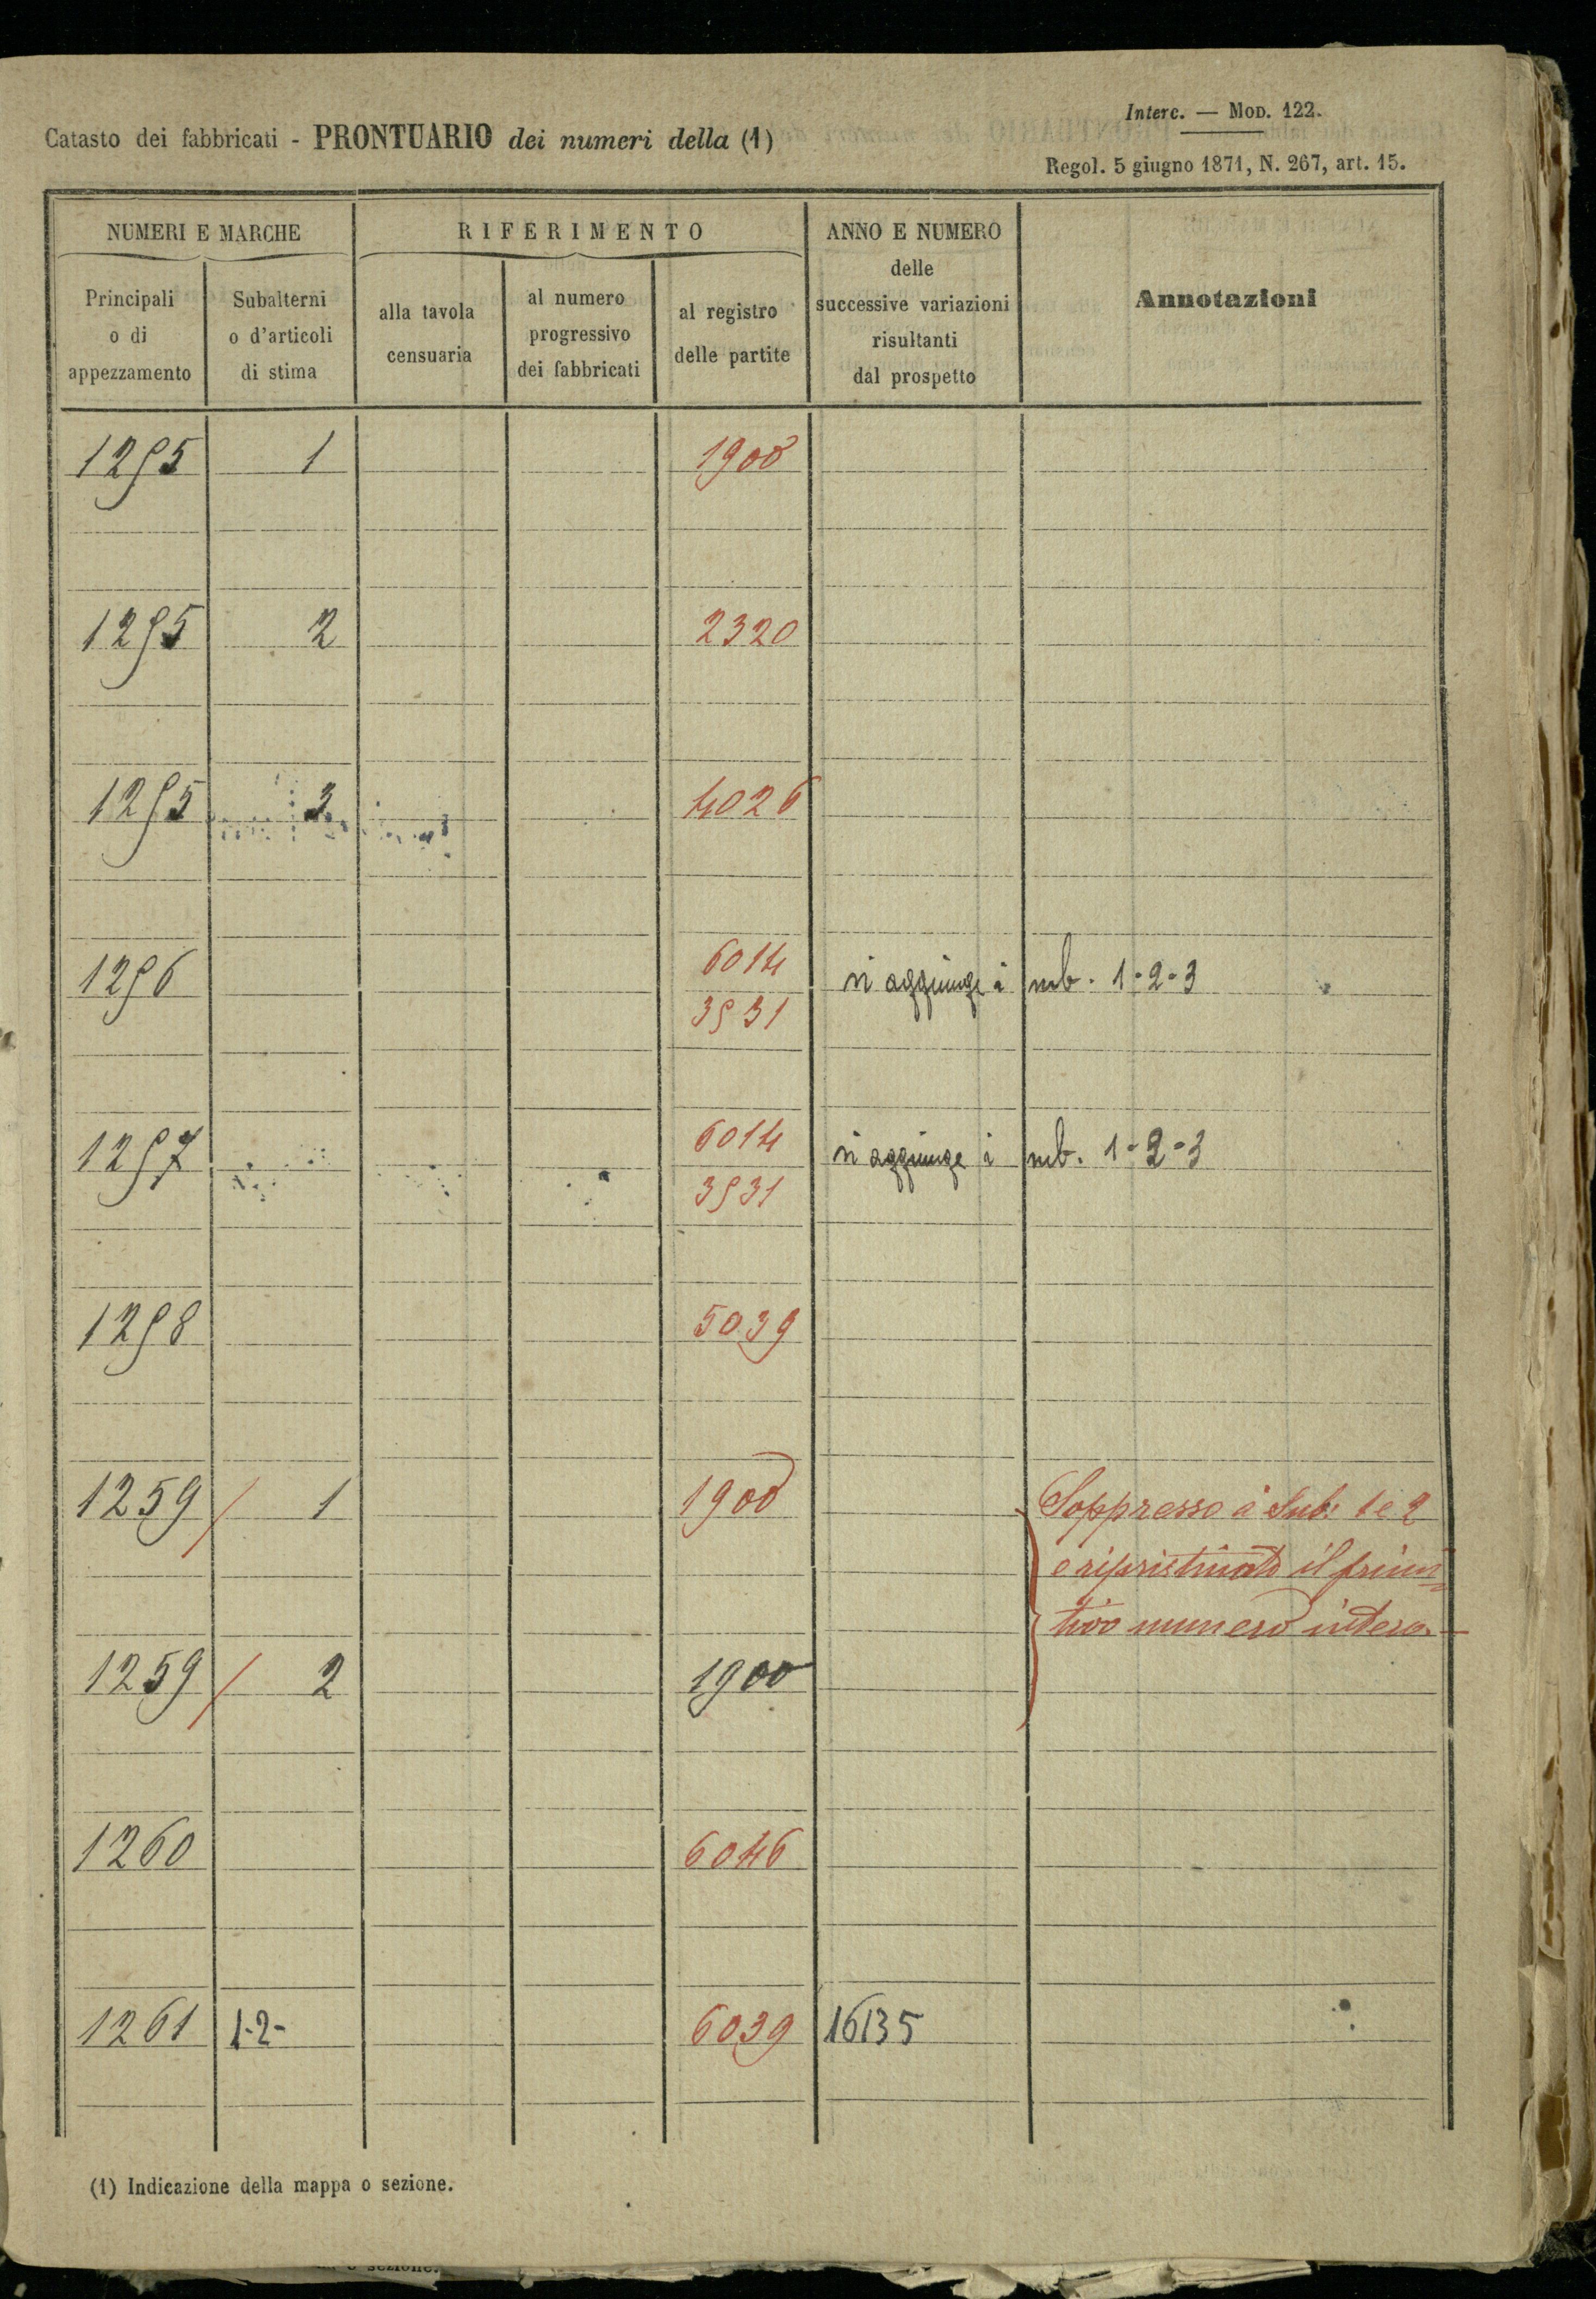 Interc. — Mod. 122.
Catasto dei fabbricati - PRONTUARIO dei numeri della (1)
Regol. 5 giugno 1871, N. 267, art. 15.
NUMERI E MARCHE
RIFERIMENTO
ANNO E NUMERO
delle
successive variazioni
risultanti
dal prospetto
Annotazioni
Principali
o di
appezzamento
Subalterni
o d'articoli
di stima
alla tavola
censuaria
al numero
progressivo
dei fabbricati
al registro
delle partite
1255 1 1900
1255 2 2320
1255 3 4026
1256 6014 si aggiunge i sub. 1-2-3
3531
1257 6014 si aggiunge i sub. 1-2-3
3531
1258 5039
1259 / 1 1900 Soppresso i Sub: 1 e 2
e ripristinato il primi=
tivo numero intero.—
1259 / 2 1900
1260 6046
1261 1-2- 6039 16135
(1) Indicazione della mappa o sezione.
o sezione.